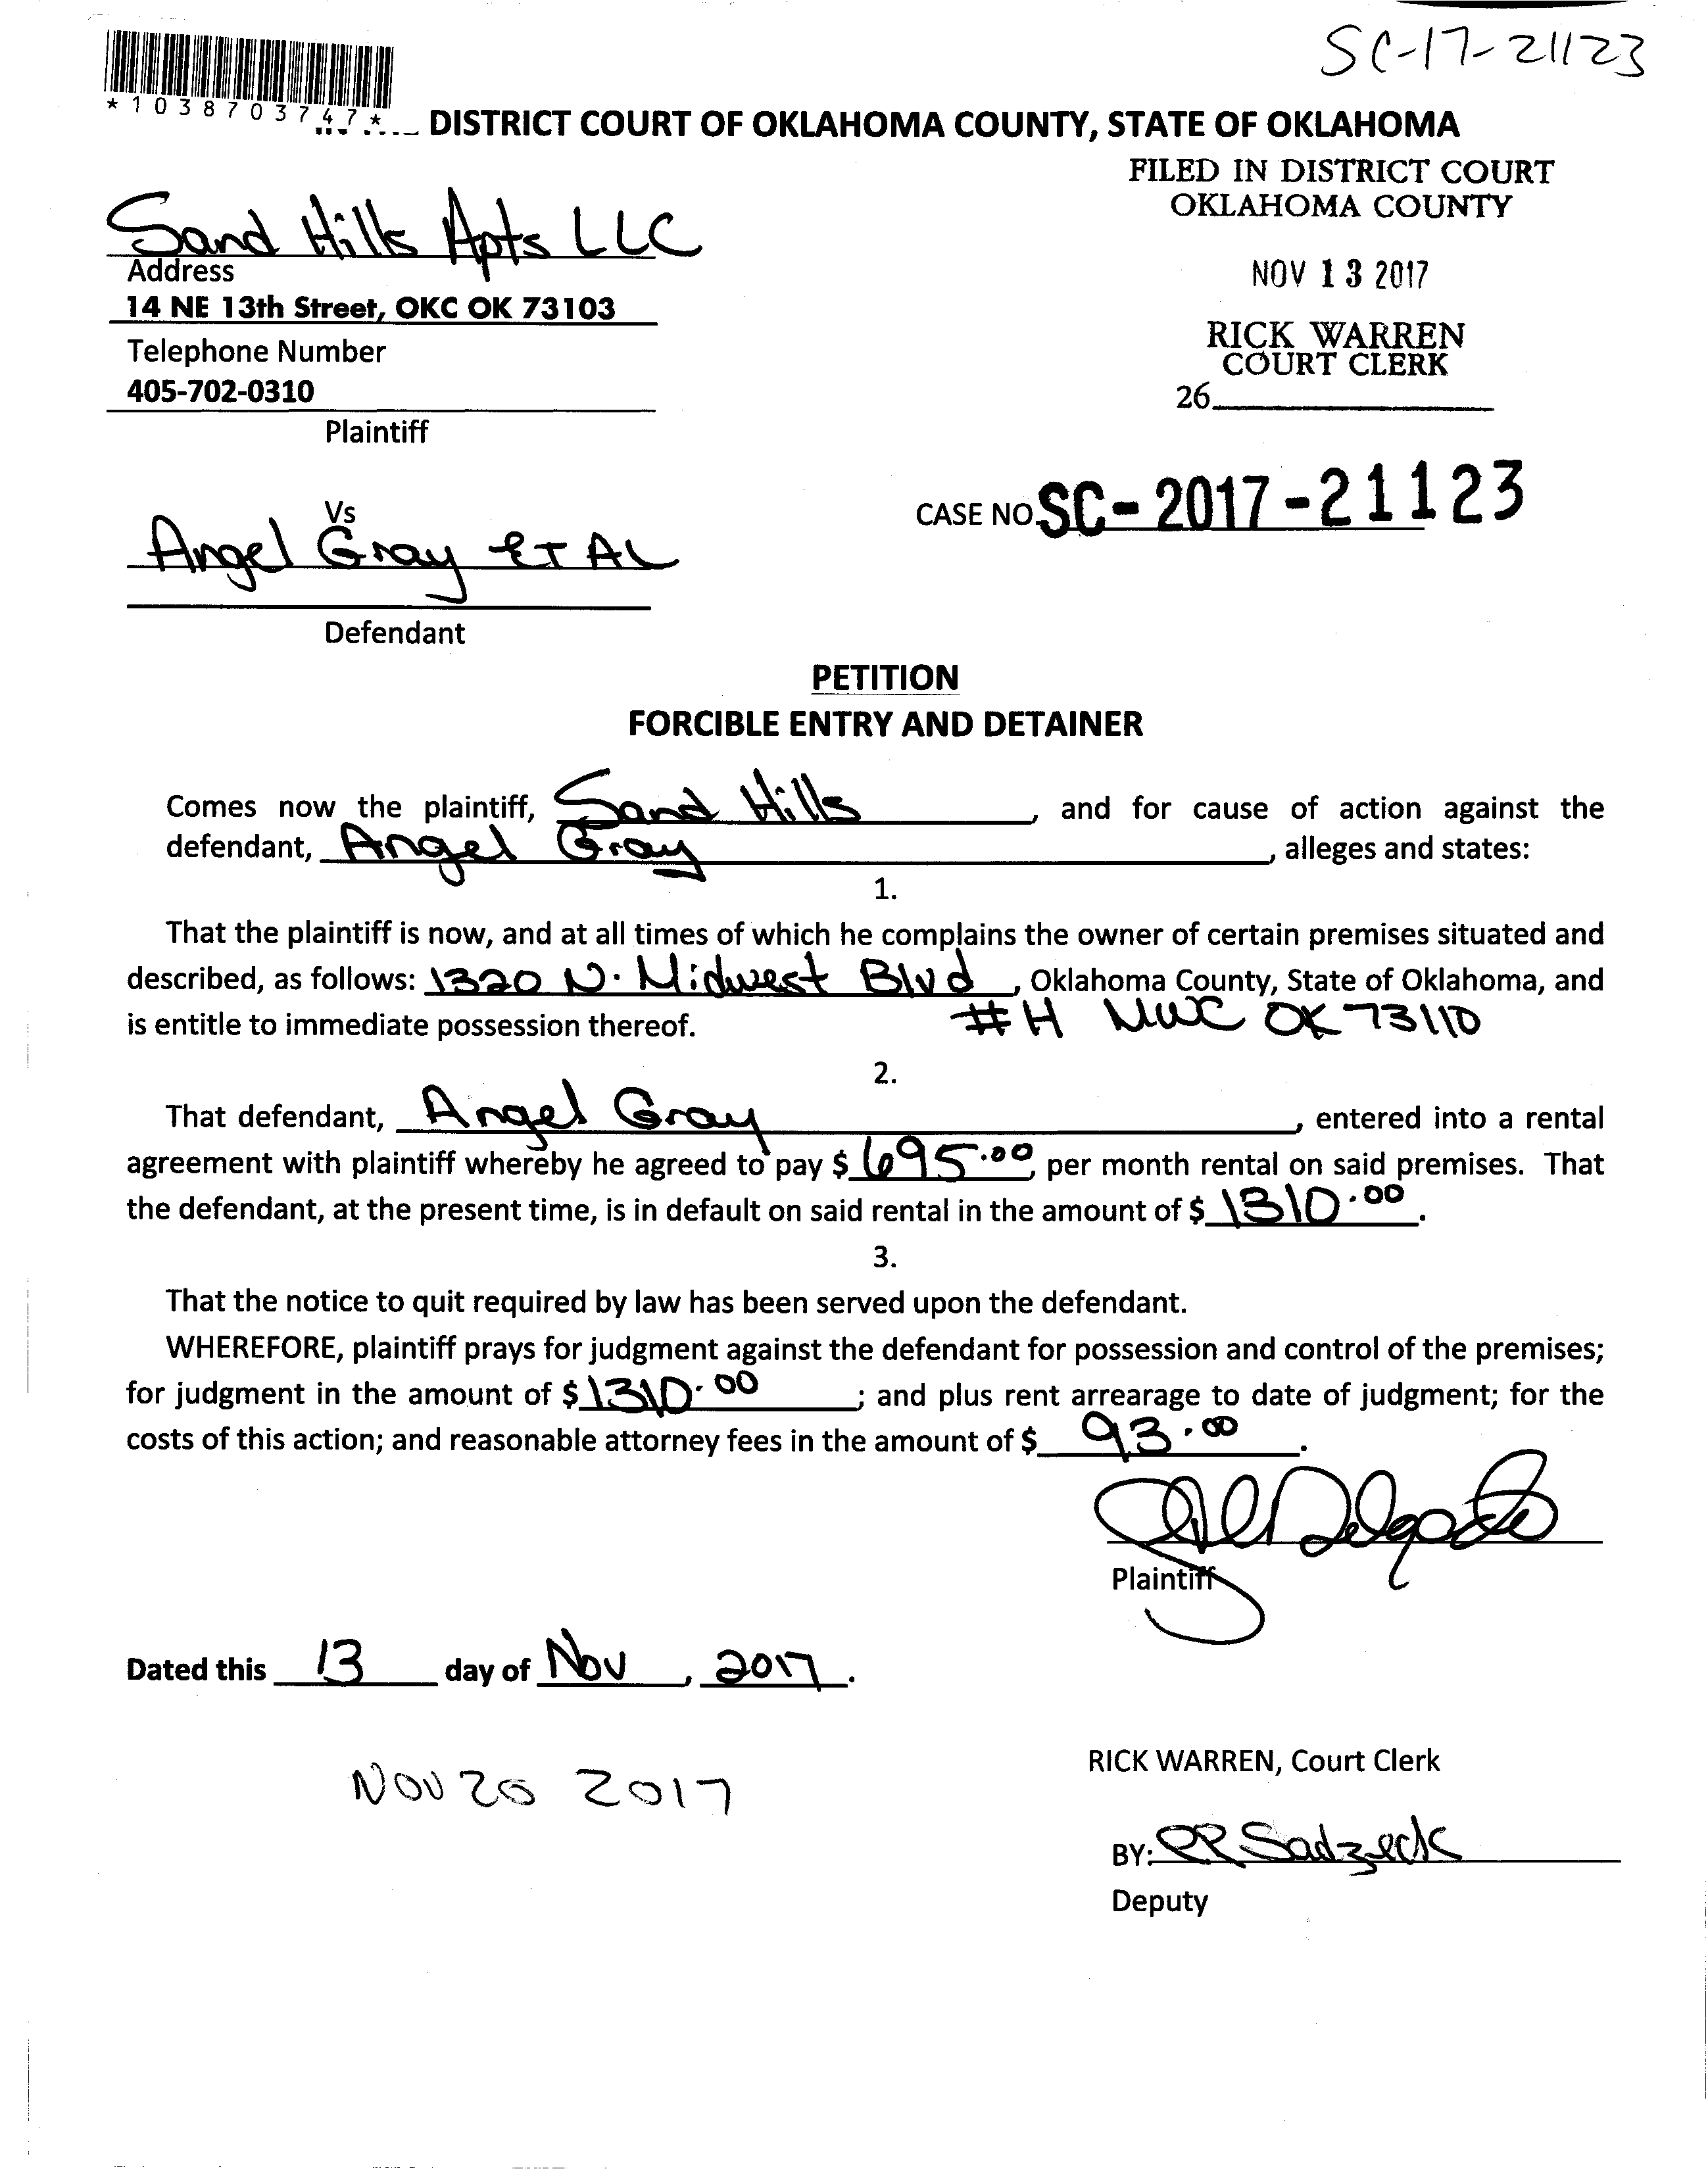 SC-17-21123
*1038703747*
DISTRICT COURT OF OKLAHOMA COUNTY, STATE OF OKLAHOMA
FILED IN DISTRICT COURT
OKLAHOMA COUNTY
Sand Hills Apts LLC
Address
14 NE 13th Street, OKC OK 73103
NOV 13 2017
Telephone Number
405-702-0310
RICK WARREN
COURT CLERK
26
Plaintiff
Vs
CASE NO. SC-2017-21123
Angel Gray ET AL
Defendant
PETITION
FORCIBLE ENTRY AND DETAINER
Comes now the plaintiff, Sand Hills, and for cause of action against the
defendant, Angel Gray, alleges and states:
1.
That the plaintiff is now, and at all times of which he complains the owner of certain premises situated and
described, as follows: 1320 N. Midwest Blvd, Oklahoma County, State of Oklahoma, and
is entitle to immediate possession thereof. #H MWC OK 73110
2.
That defendant, Angel Gray, entered into a rental
agreement with plaintiff whereby he agreed to pay $ 695.00, per month rental on said premises. That
the defendant, at the present time, is in default on said rental in the amount of $ 1310.00.
3.
That the notice to quit required by law has been served upon the defendant.
WHEREFORE, plaintiff prays for judgment against the defendant for possession and control of the premises;
for judgment in the amount of $ 1310.00; and plus rent arrearage to date of judgment; for the
costs of this action; and reasonable attorney fees in the amount of $ 93.00.
Delgado
Plaintiff
Dated this 13 day of Nov, 2017.
RICK WARREN, Court Clerk
NOV 20 2017
BY: Sadzeck
Deputy